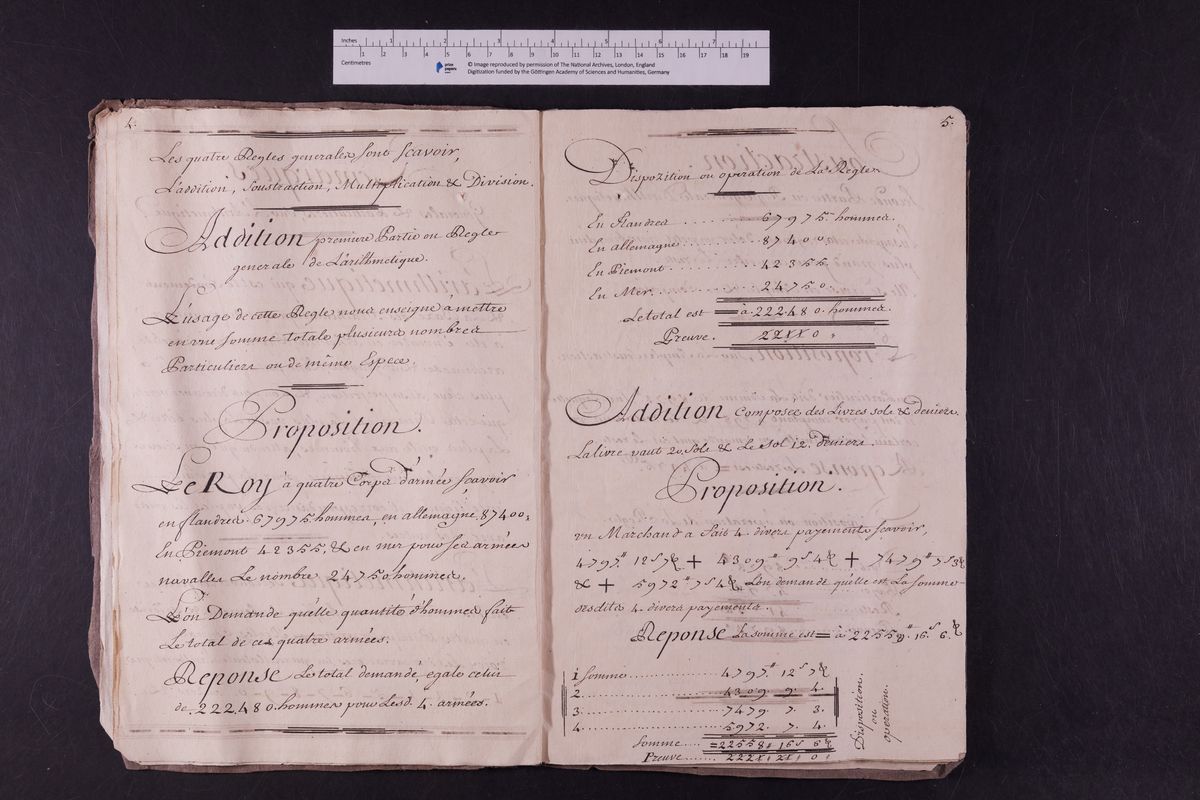 Inches 1 2 3 4 5 6 7
1 2 3 4 5 6 7 8 9 10 11 12 13 14 15 16 17 18 19
Centimetres
prize papers
© Image reproduced by permission of The National Archives, London, England
Digitization funded by the Göttingen Academy of Sciences and Humanities, Germany
4.
Les quatre Regles generales sont scavoir,
L'addition, Soustraction, Multiplication & Division.
Addition premiere Partie ou Regles
generale de L'arithmetique.
L'usage de cette Regle nous enseigne à mettre
en vne somme totale plusieurs nombres
Particuliers ou de même Espece.
Proposition.
Le Roy à quatre Corps d'armée scavoir
en flandres 67975 hommes, en allemagne, 87400,
En Piemont 42355, & en mer pour ses armées
navalles Le nombre 24750 hommes.
L'on Demande qu'elle quantité d'hommes fait
Le total de ces quatre armées.
Reponse Le total demandé, egale celui
de 222480 hommes pour Lesd. 4. armées.
5.
Dispozition ou operation de La Regle
En flandres 67975 hommes.
En allemagne 87400.
En Piemont 42355.
En Mer. 24750.
Le total est = à 222480 hommes.
Preuve. 22XX0
Addition composée des Livres sols & deniers.
La livre vaut 20. sols & Le sol 12. deniers.
Proposition.
vn Marchand à fait 4. divers payements scavoir,
4797.# 12s 7d + 4309# 9s 4d + 7479# 7s 3d
& + 5972# 7s 4d L'on demande qu'elle est La somme
desdits 4. divers payements.
Reponse La somme est = à 22559# 16s 6d
1 somme 4797.# 12s 7d
2. 4309. 9. 4.
3. 7479. 7. 3.
4. 5972. 7. 4.
Somme = 22558# 16s 6d
Preuve
Disposition
ou
operation.